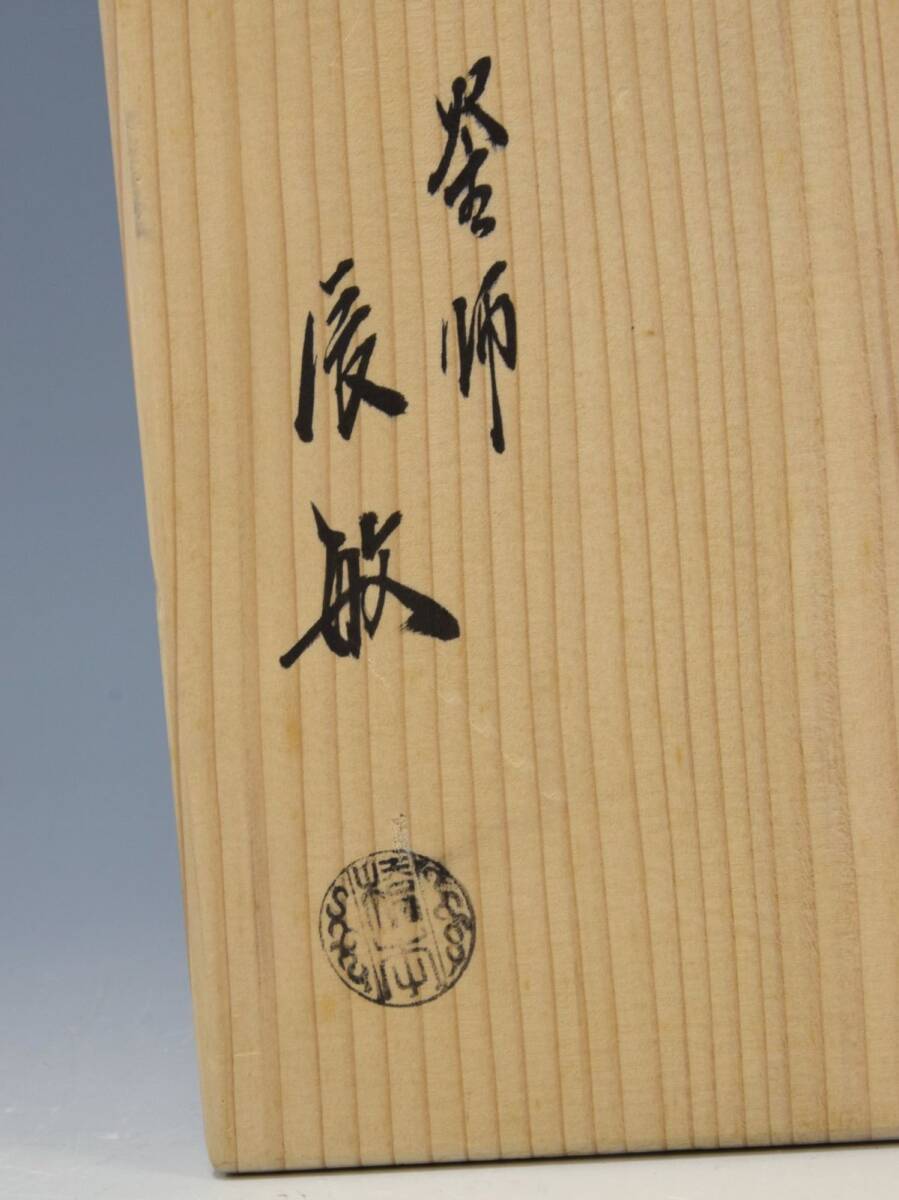 釜師
辰敏